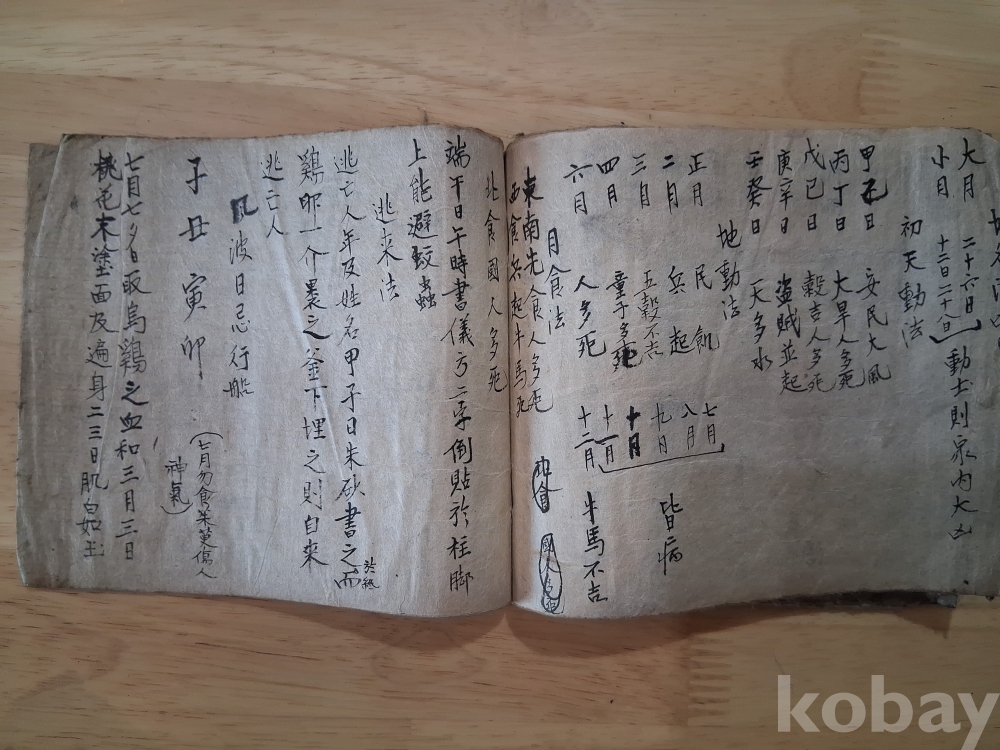 大月 二十六日 動土則家內大凶
小月 十二日二十八日
初天動法
甲乙日 安民大風
丙丁日 大旱人多死
戊己日 穀吉人多死
庚辛日 盜賊並起
壬癸日 天多水
地動法
正月 民飢 七月
二月 兵起 八月 皆病
三月 五穀不吉 九月
四月 童子多死 十月
六月 人多死 十一月 牛馬不吉
十二月
月食法
東南先食人多死
西食兵起牛馬死
北食國人多死
端午日午時書儀方二字倒貼於柱脚
上能避蚊蟲
逃来法
逃亡人年及姓名甲子日朱砂書之於紙而
鷄卵一介裹之釜下埋之則自来
逃亡人
風波日忌行船
子丑寅卯
(七月勿食朱萸傷人
神氣)
七月七夕日取烏鷄之血和三月三日
桃花末塗面及遍身二三日肌白如玉
kobay